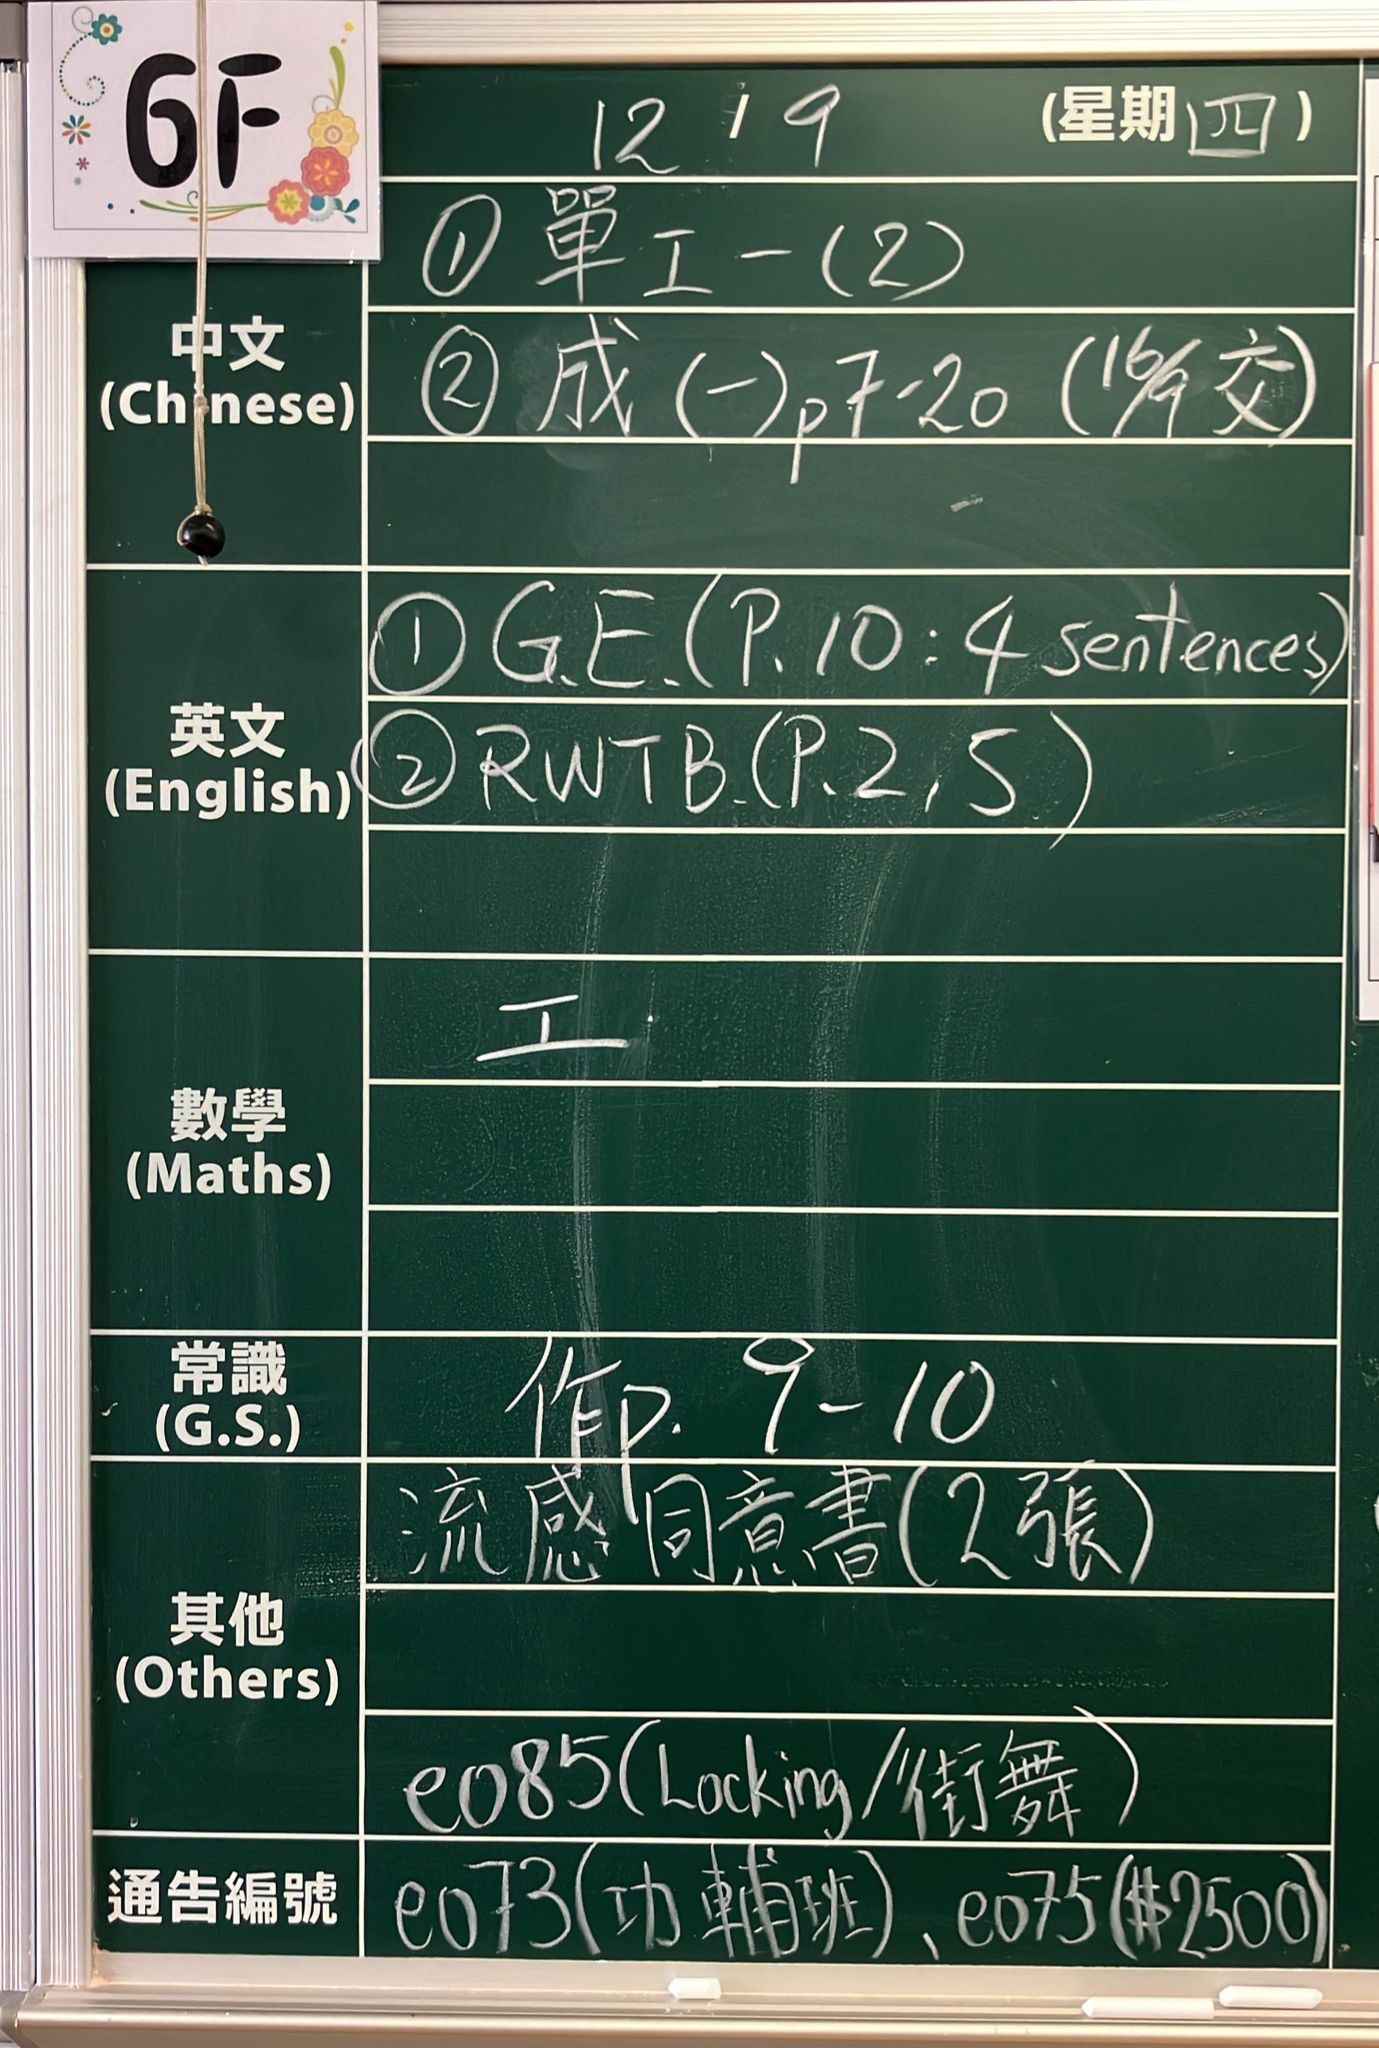 6F
12 / 9 (星期四)
中文
(Chinese)
① 單工一(2)
② 成(一)p7-20 (16/9交)
英文
(English)
① G.E.(P.10:4 sentences)
② RWTB.(P.2,5)
數學
(Maths)
工
常識
(G.S.)
作p.9-10
其他
(Others)
流感同意書(2張)
e085(Locking/街舞)
通告編號
e073(功輔班)、e075($2500)